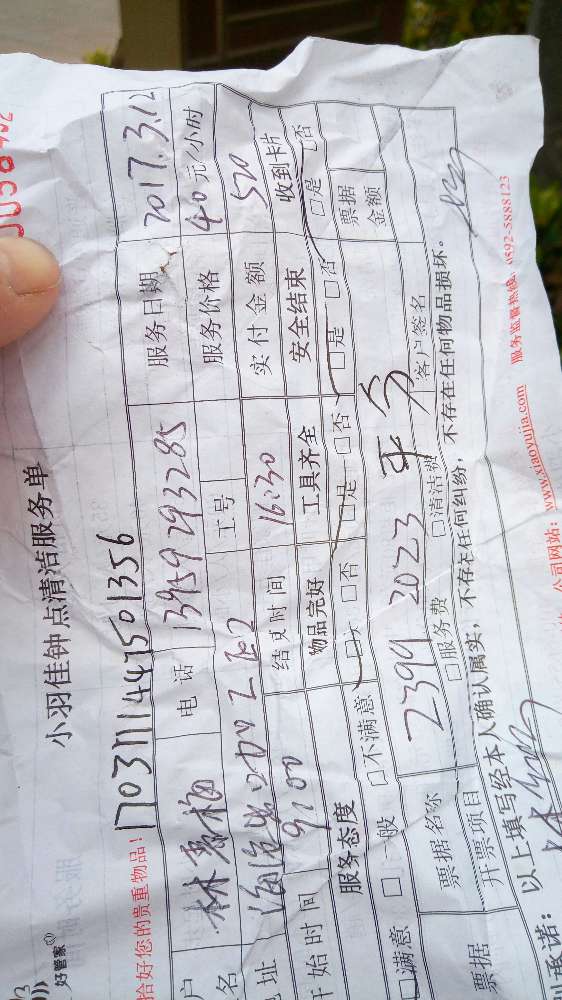 小羽佳钟点清洁服务单
好管家
拾好您的贵重物品!
1703111447501356
户 名 林秀梅 电话 13959293285 服务日期 2017.3.12
地址 工号 服务价格 40元/小时
开始时间 9:00 结束时间 16:30 实付金额 520
服务态度 物品完好 工具齐全 安全结束 收到卡片
□满意 □一般 □不满意 □是 □否 □是 □否 □是 □否 □是 □否
票据名称 2399 2023 平分 票据金额
票据 开票项目 □服务费 □清洁费 客户签名
以上填写经本人确认属实，不存在任何纠纷，不存在任何物品损坏。
承诺：
公司网站：www.xiaoyujia.com 服务监督热线：0592-5888123